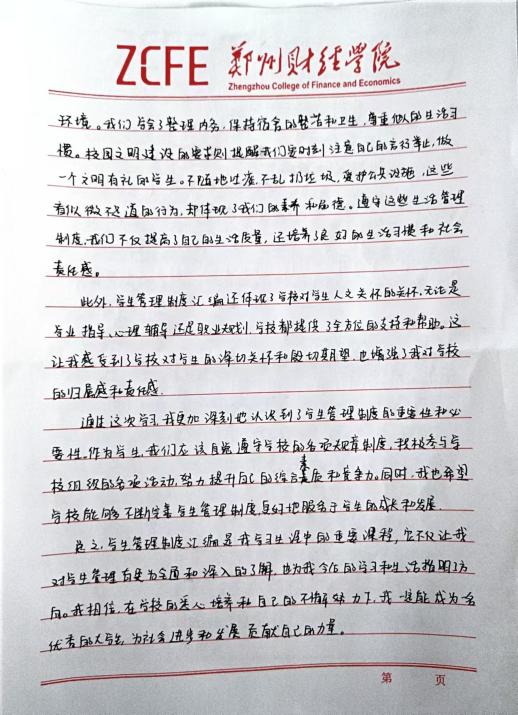 ZCFE 郑州财经学院
Zhengzhou College of Finance and Economics
环境。我们学会了整理内务,保持宿舍的整洁和卫生,尊重他人的生活习
惯。校园文明建设的要求则提醒我们要时刻注意自己的言行举止,做
一个文明有礼的学生。不随地吐痰、不乱扔垃圾,爱护公共设施,这些
看似微不足道的行为,却体现了我们的素养和品德。遵守这些生活管理
制度,我们不仅提高了自己的生活质量,还培养了良好的生活习惯和社会
责任感。
此外,学生管理制度汇编还体现了学校对学生人文关怀的关怀,无论是
专业指导、心理辅导还是职业规划,学校都提供了全方位的支持和帮助。这
让我感受到了学校对学生的深切关怀和殷切期望,也增强了我对学校
的归属感和责任感。
通过这次学习,我更加深刻地认识到了学生管理制度的重要性和必
要性。作为学生,我们应该自觉遵守学校的各项规章制度,积极参与学
校组织的各项活动,努力提升自己的综合素质和竞争力。同时,我也希望
学校能够不断完善学生管理制度,更好地服务于学生的成长和发展。
总之,学生管理制度汇编是我学习生涯中的重要课程,它不仅让我
对学生管理有更为全面和深入的了解,也为我今后的学习和生活指明了方
向。我相信,在学校的悉心培养和自己的不懈努力下,我一定能成为一名
优秀的大学生,为社会进步和发展贡献自己的力量。
第 页